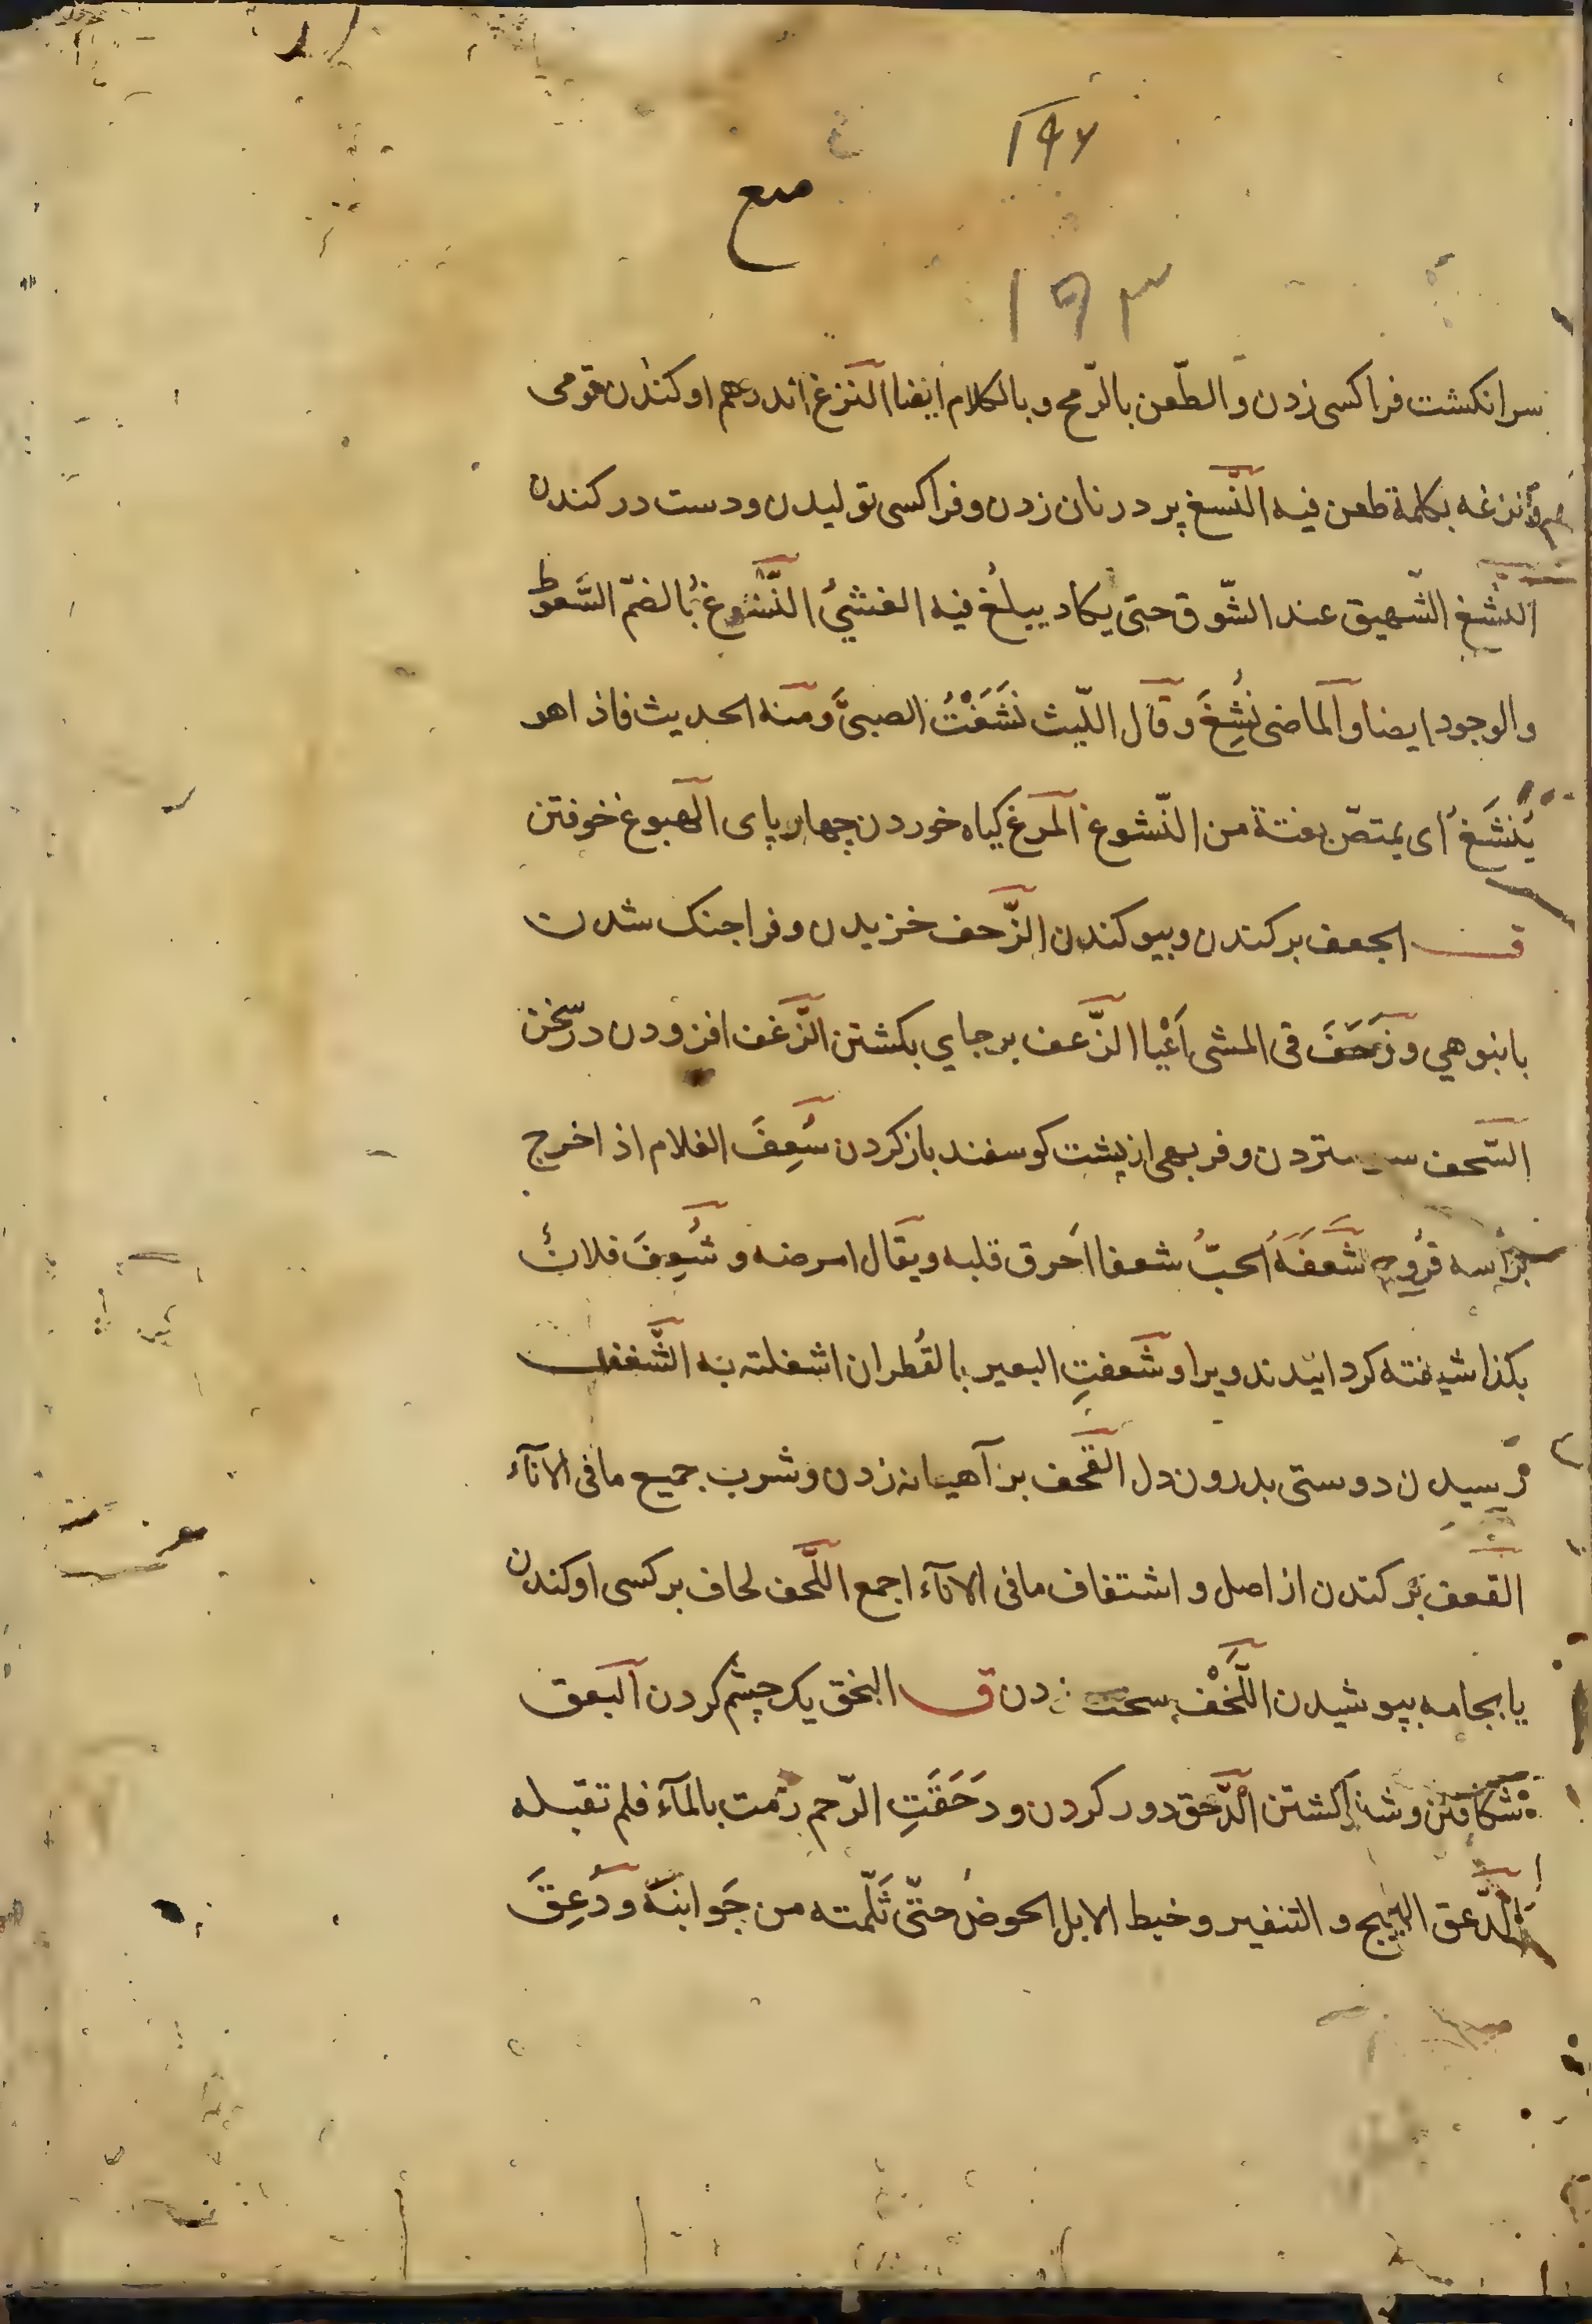 ۱۹۷
منع
۱۹۳
سرانکشت فراکسی زدن والطّعن بالرّمح وبالکلام ایضا النزغ اندر هم اوکندن قومی
ونزغه بکلمة طعن فیه النّسغ پر در نان زدن وفراکسی تولیدن ودست در کندن
النشغ الشّهیق عند الشّوق حتی یکاد یبلغ فیه الغشیُ النُّشوغ بالضمّ السَّعوط
والوجود ایضا والماضی نُشِغَ وقال اللّیث نَشَغْتُ الصبیَّ ومنه الحدیث فاذا هو
یَنْشَغُ ای یمتصّ بغتة من النّشوغ المرغ کیاه خوردن چهارپای الهبوغ خوفتن
ف الجعف برکندن وبیوکندن الزَّحف خزیدن وفراجنک شدن
بانبوهی وزَحَفَ فی المشی اَعْیا الزَّعف برجای بکشتن الزّغف افزودن در سخن
السّحف ستردن وفربهی از پشت کوسفند بازکردن سُعِفَ الغلام اذا خرج
براسه قروح شَعَفَهُ الحبُّ شعفا احرق قلبه ویقال امرضه وشُعِفَ فلانٌ
بکذا شیفته کردانیدند ویرا وشعفتِ البعیر بالقُطران اشغلته به الشَّغف
رسیدن دوستی بدرون دل القَحف برآهیانه زدن وشرب جمیع مافی الاناء
القعف برکندن از اصل واشتفاف مافی الاناء اجمع اللَّحف لحاف برکسی اوکندن
یا بجامه بپوشیدن اللَّخْف سخت زدن ق البخق یک چشم کردن البعق
شکافتن وشتر کشتن الدَّحق دور کردن ودَحَقَتِ الرّحم رمت بالماء فلم تقبله
الدّعق الهیج والتنفیر وخبط الابل الحوضَ حتّی ثَلّمته من جَوانبه ودُعِقَ